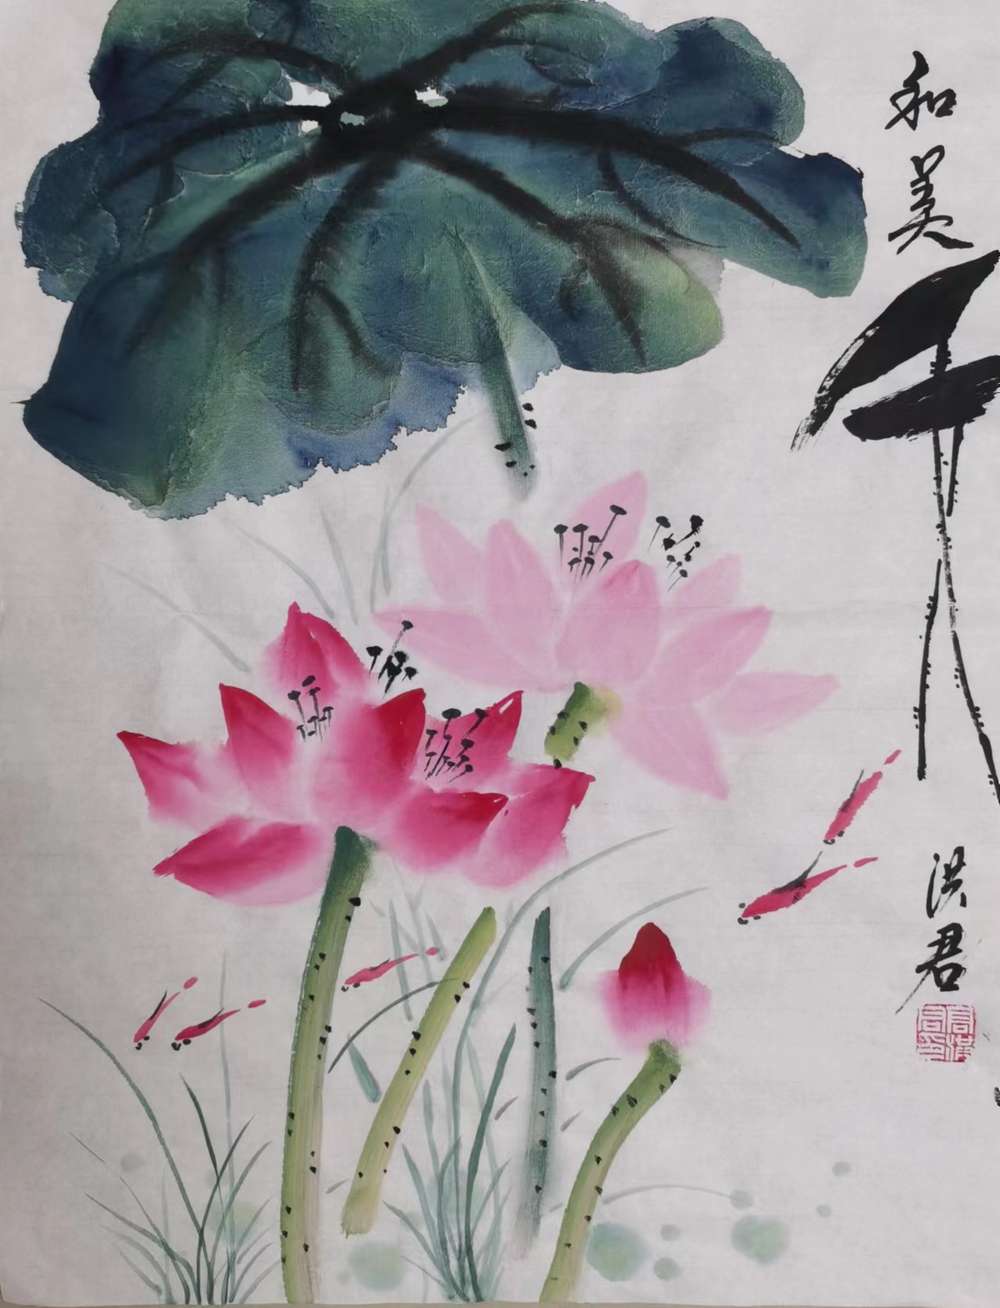 和美
洪君